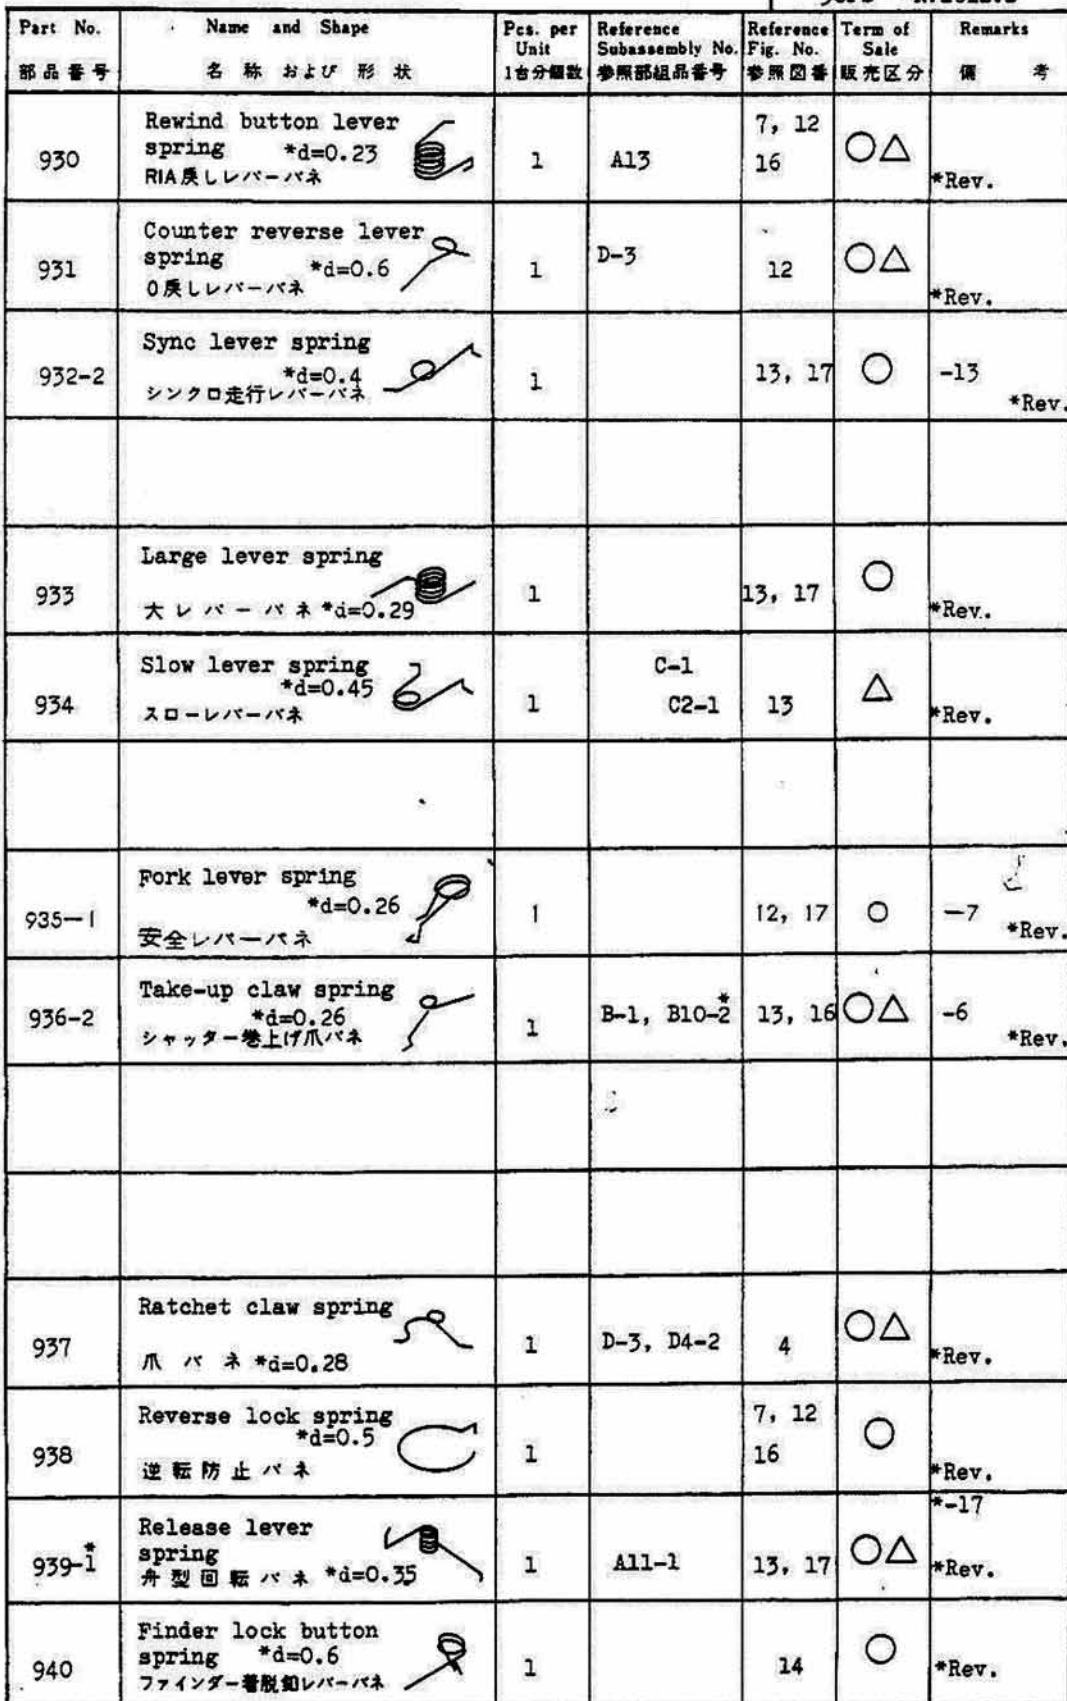 Part No.
部品番号
Name and Shape
名称および形状
Pcs. per Unit
1台分個数
Reference Subassembly No.
参照部組品番号
Reference Fig. No.
参照図番
Term of Sale
販売区分
Remarks
備考
930
Rewind button lever
spring *d=0.23
RIA戻しレバーバネ
1
A13
7, 12
16
○△
*Rev.
931
Counter reverse lever
spring *d=0.6
0戻しレバーバネ
1
D-3
12
○△
*Rev.
932-2
Sync lever spring
*d=0.4
シンクロ走行レバーバネ
1
13, 17
○
-13
*Rev.
933
Large lever spring
大レバーバネ *d=0.29
1
13, 17
○
*Rev.
934
Slow lever spring
*d=0.45
スローレバーバネ
1
C-1
C2-1
13
△
*Rev.
935-1
Fork lever spring
*d=0.26
安全レバーバネ
1
12, 17
○
-7
*Rev.
936-2
Take-up claw spring
*d=0.26
シャッター巻上げ爪バネ
1
B-1, B10-2*
13, 16
○△
-6
*Rev.
937
Ratchet claw spring
爪バネ *d=0.28
1
D-3, D4-2
4
○△
*Rev.
938
Reverse lock spring
*d=0.5
逆転防止バネ
1
7, 12
16
○
*Rev.
939-1*
Release lever
spring
舟型回転バネ *d=0.35
1
A11-1
13, 17
○△
*-17
*Rev.
940
Finder lock button
spring *d=0.6
ファインダー着脱釦レバーバネ
1
14
○
*Rev.